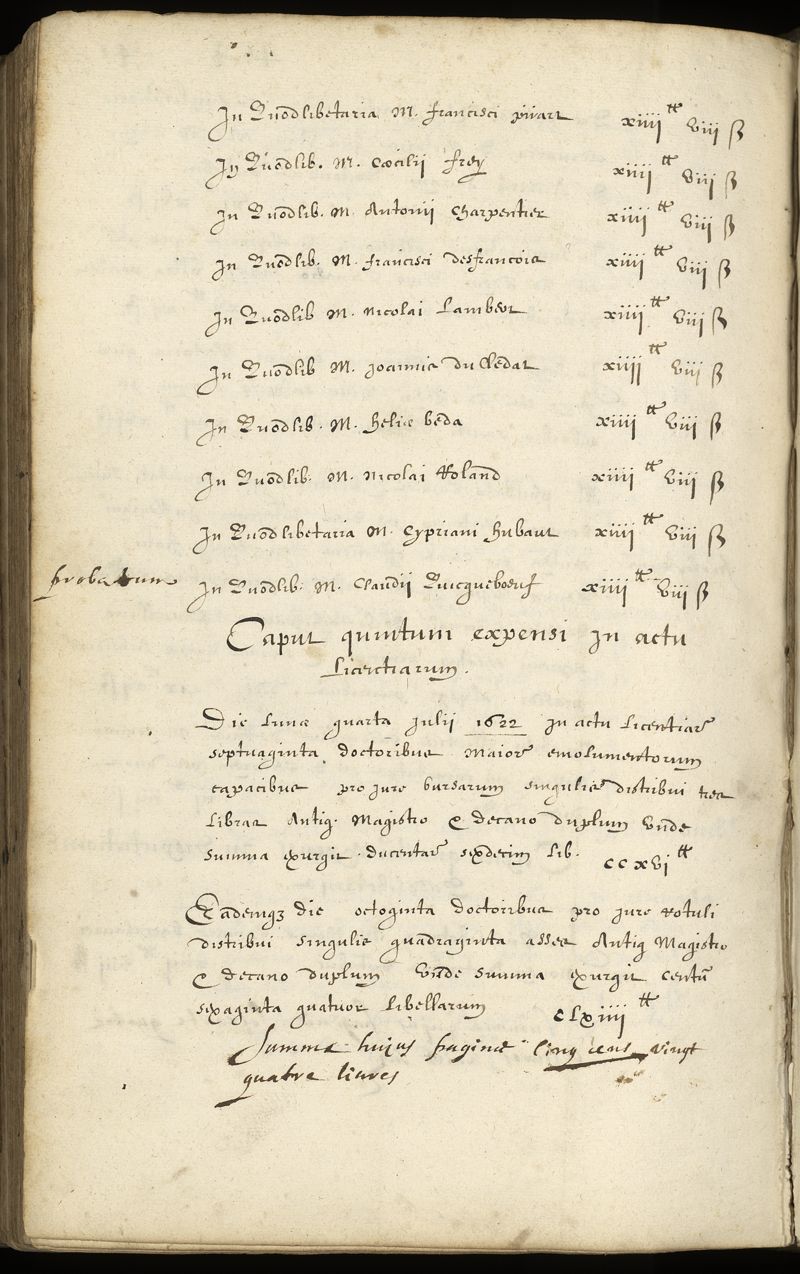 In Quodlibetaria M. Francisci pijart xiiii ₶ viii ß
In Quodlib. M. Cæcilij frey xiiii ₶ viii ß
In Quodlib. M. Antonii Charpentier xiiii ₶ viii ß
In Quodlib. M. francisci desfrancois xiiii ₶ viii ß
In Quodlib M. Nicolai Lambert xiiii ₶ viii ß
In Quodlib M. Joannis du Cledat xiiii ₶ viii ß
In Quodlib. M. Heliæ beda xiiii ₶ viii ß
In Quodlib. M. Nicolai Roland xiiii ₶ viii ß
In Quodlibetaria M. Cypriani Hubaut xiiii ₶ viii ß
probatum In Quodlib. M. Claudij Quicqueboeuf xiiii ₶ viii ß
Caput quintum expensi In actu
Licentiarum.
Die Lunæ quarta Julij 1622 In actu Licentiar
septuaginta doctoribus Maior emolumentorum
capacibus pro jure bursarum singulis distribui tres
libras Antiq. Magistro & decano duplum Unde
summa exurgit ducentar sexdecim lib. ccxvi ₶
Eademq3 die octoginta doctoribus pro jure rotuli
distribui singulis quadraginta asses Antiq Magistro
& decano duplum Unde summa exurgit centū
sexaginta quatuor libellarum clxiiii ₶
Summa huius paginæ Cinq cens vingt
quatre livres